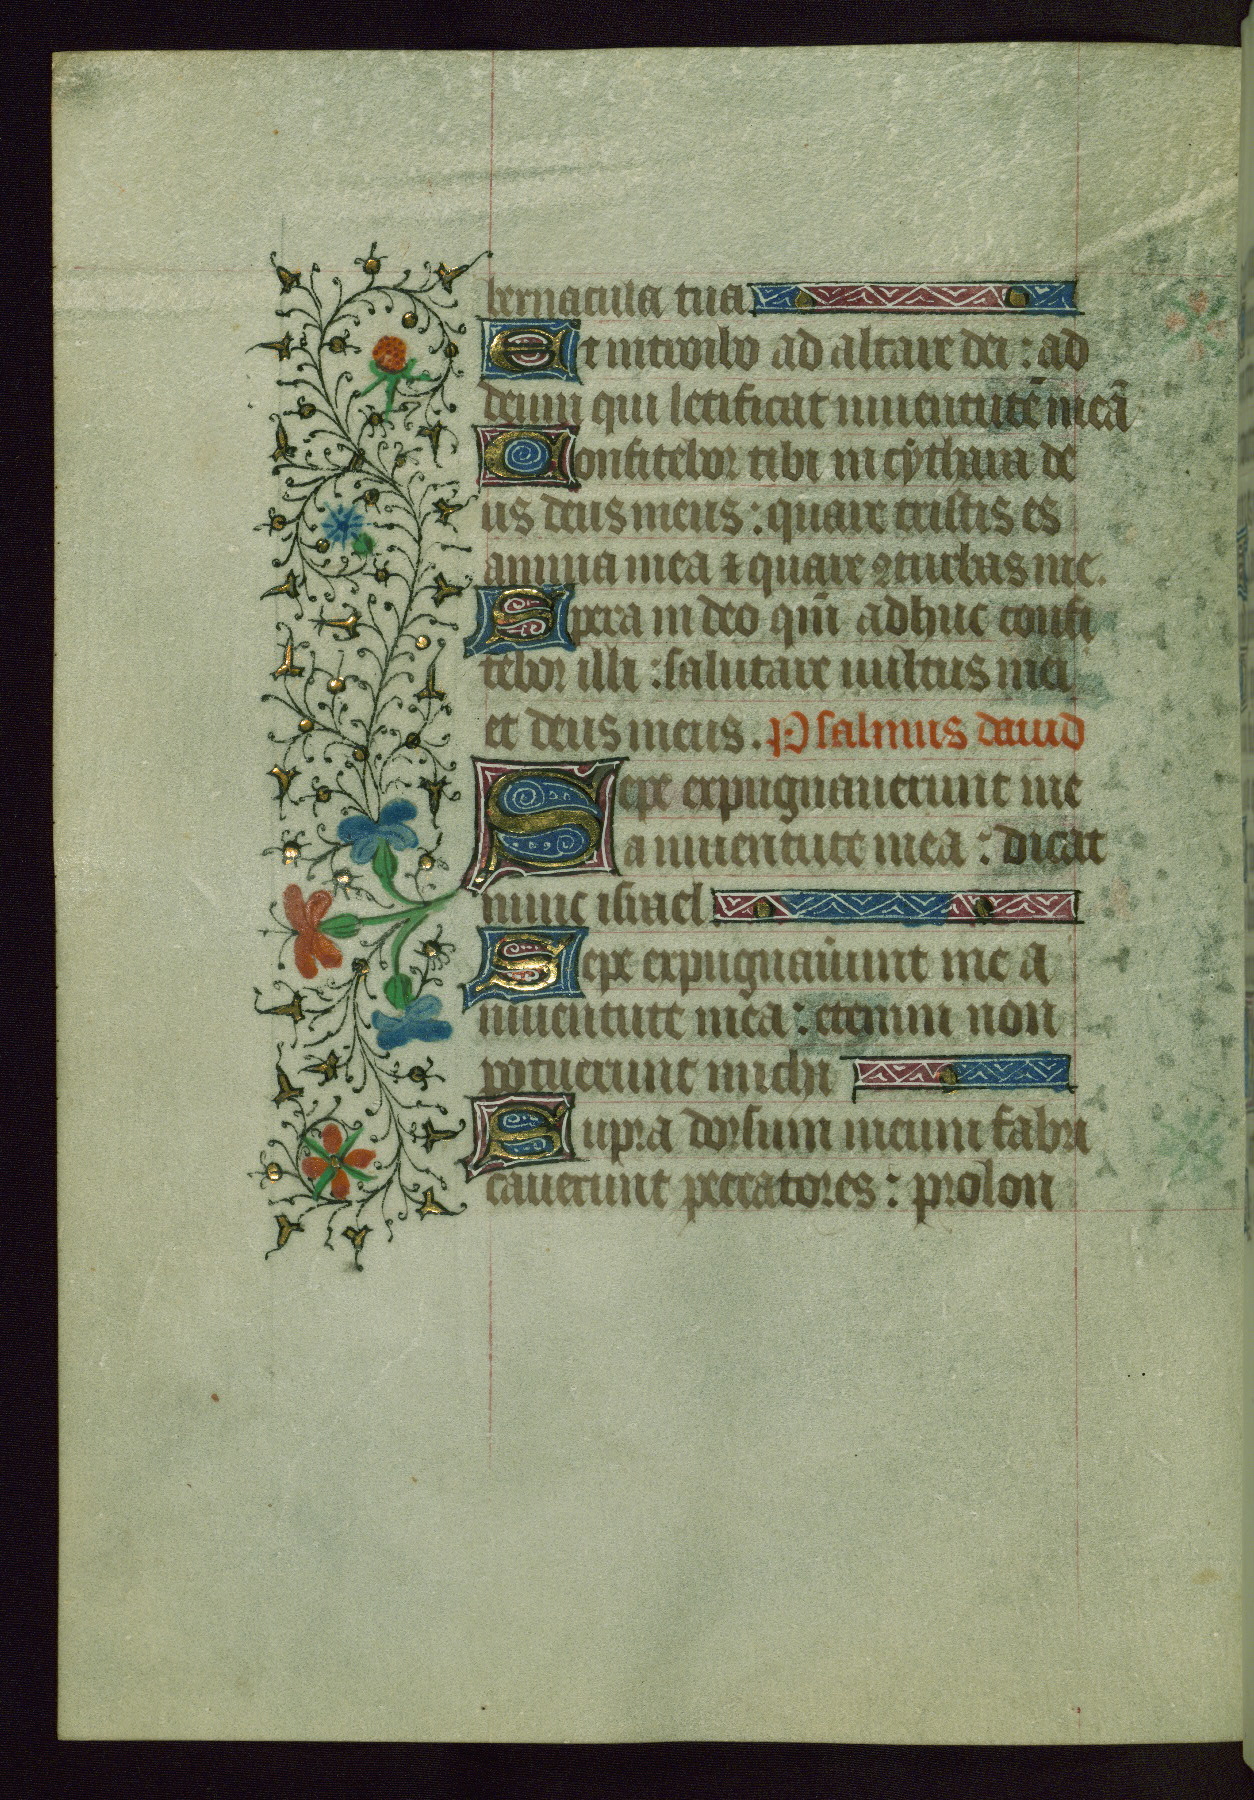 bernacula tua
Et introibo ad altare dei : ad
deum qui letificat iuuentutē meā
Confitebor tibi in cythara de
us deus meus : quare tristis es
anima mea ⁊ quare ꝯturbas me.
Spera in deo qm̄ adhuc confi
tebor illi : salutare uultus mei
et deus meus. Psalmus dauid
Sepe expugnauerunt me
a iuuentute mea : dicat
nunc israel
Sepe expugnaũunt me a
iuuentute mea : etenim non
potuerunt michi
Supra dorsum meum fabri
cauerunt peccatores : prolon